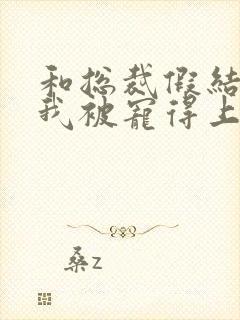 和总裁假结
我被宠得上
桑z